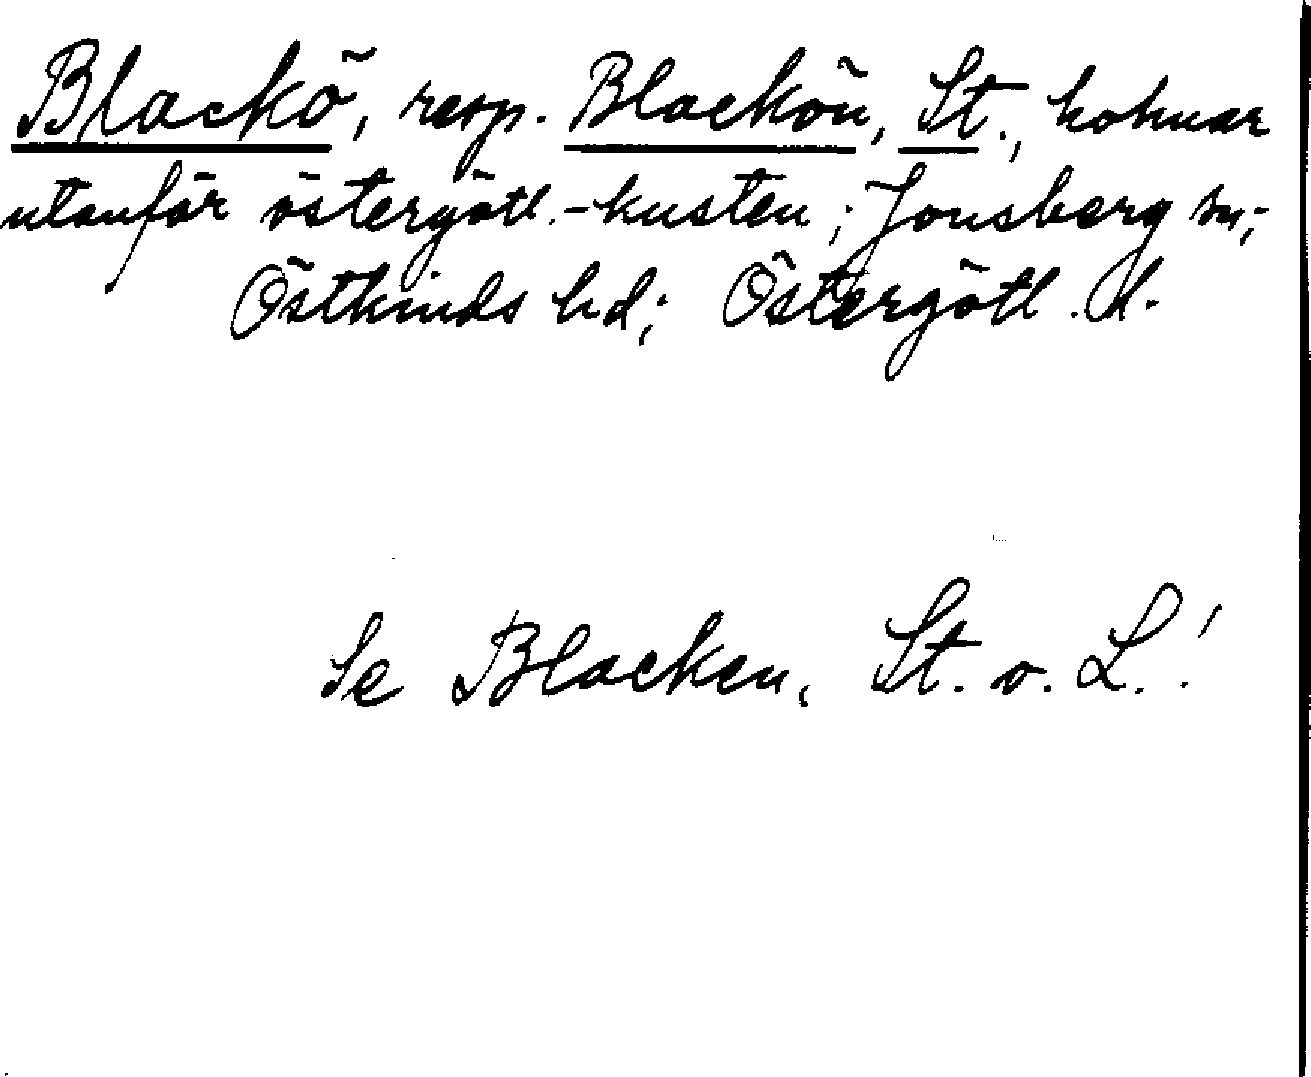 Blackö, resp. Blackön, St., holmar
utanför östergötl.-kusten; Jonsberg sn;
Östkinds hd; Östergötl. l.
Se Blacken, St. o. L.!